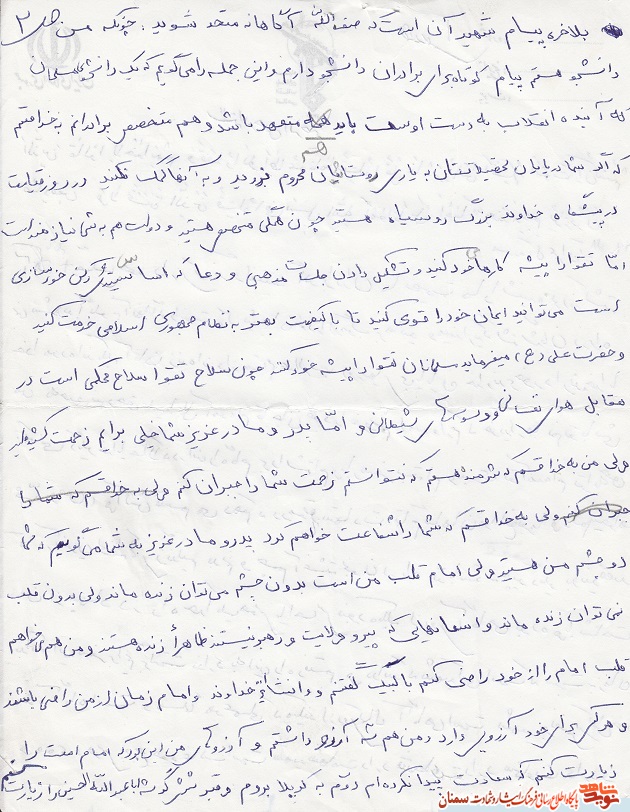 ص ۲
بلاخره پیام شهید آن است که صف الله آگاهانه متحد شوید. چونکه من
دانشجو هستم پیام کوتاه برای برادران دانشجو دارم و این جمله را می گویم که یک دانشجوی مسلمان
که آینده انقلاب به دست اوست باید همه متعهد باشد و هم متخصص برادرانم به خدا قسم
هم
که اگر شما در پایان تحصیلاتتان به یاری روستائیان محروم نروید و به آنها کمک نکنید در روز قیامت
در پیشگاه خداوند بزرگ روسیاه هستید چون همگی متخصص هستید و دولت هم به شما نیازمند است
امّا تقوا را پیشه کارها خود کنید و تشکیل دادن جلسات مذهبی و دعا که اساسیترین رکن خودسازی
است می توانید ایمان خود را قوی کنید تا با کیفیت بهتر به نظام جمهوری اسلامی خدمت کنید
و حضرت علی (ع) میفرماید مسلمانان تقوا را پیشه خود کنند چون سلاح تقوا سلاح محکمی است در
مقابل هوای نفسانی و وسوسه های شیطانی و امّا پدر و مادر عزیز شما خیلی برایم زحمت کشیده اید
ولی من به خدا قسم که شرمنده هستم که نتوانستم زحمت شما را جبران کنم ولی به خدا قسم که شما را
جبران کنم ولی به خدا قسم که شما را شفاعت خواهم کرد پدر و مادر عزیز به شما می گویم که شما
دو چشم من هستید ولی امام قلب من است بدون چشم می توان زنده ماند ولی بدون قلب
نمی توان زنده ماند و انسانهایی که پیرو ولایت و رهبر نیستند ظاهراً زنده هستند و من هم می خواهم
قلب امام را از خود راضی کنم با لبیک گفتنم و انشاءالله خداوند و امام زمان از من راضی باشند
و هر کس برای خود آرزویی دارد و من هم سه آرزو داشتم و آرزوهای من این بود که امام امت را
زیارت کنم که سعادت پیدا نکرده ام دوّم به کربلا بروم و قبر شش گوشه اباعبدالله الحسین را زیارت کنم
نوید شاهد
پایگاه اطلاع رسانی فرهنگ ایثار و شهادت سمنان